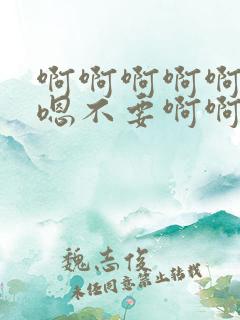 啊啊啊啊啊
嗯不要啊啊
魏志俊
未经同意禁止转载